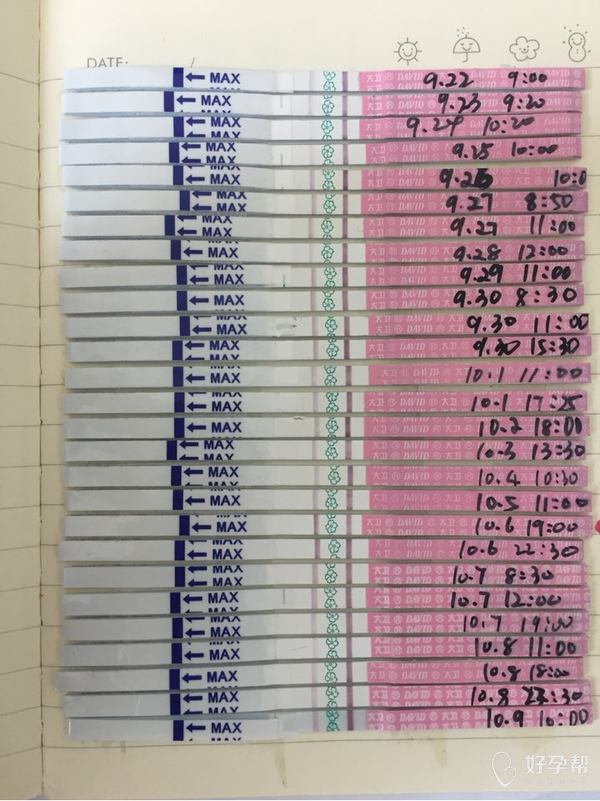 DATE: /
← MAX 大卫 DAVID 9.22 9:00
← MAX 9.23 9:20
← MAX 9.24 10:20
← MAX 9.25 10:00
← MAX 10:0
← MAX 9.27 8:50
← MAX 9.27 11:00
← MAX 9.28 12:00
← MAX 9.29 11:00
← MAX 9.30 8:30
← MAX 9.30 11:00
← MAX 9.30 15:30
← MAX 10.1 11:00
← MAX 10.1 17:25
← MAX 10.2 18:00
← MAX 10.3 13:30
← MAX 10.4 10:30
← MAX 10.5 11:00
← MAX 大卫 DAVID 10.6 19:00
← MAX 10.6 22:30
← MAX 10.7 8:30
← MAX 10.7 12:00
← MAX 10.7 19:00
← MAX 10.8 11:00
← MAX 10.8 18:00
← MAX 10.8 23:30
← MAX 10.9 10:00
好孕帮